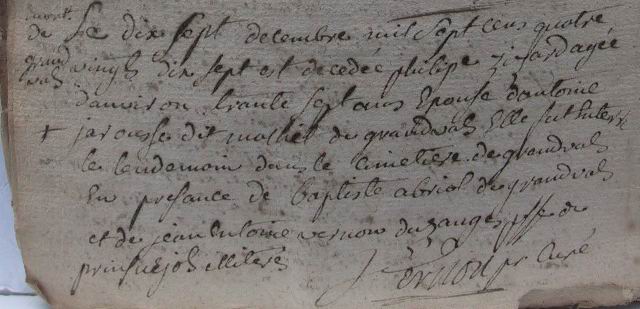 mort
de Le dix sept decembre mil sept cens quatre
grand
val vingt dix sept est decedée philipe girard agée
d'anviron trante sept ans Epouse d'antoine
+ jarousse dit mathieu de grandval Elle fut Enterr
le lendemoin dans le cimetiere de grandval
En presance de baptiste abrial de grandval
et de jean antoine vernou du zauges psse de
illiterés
pr curé